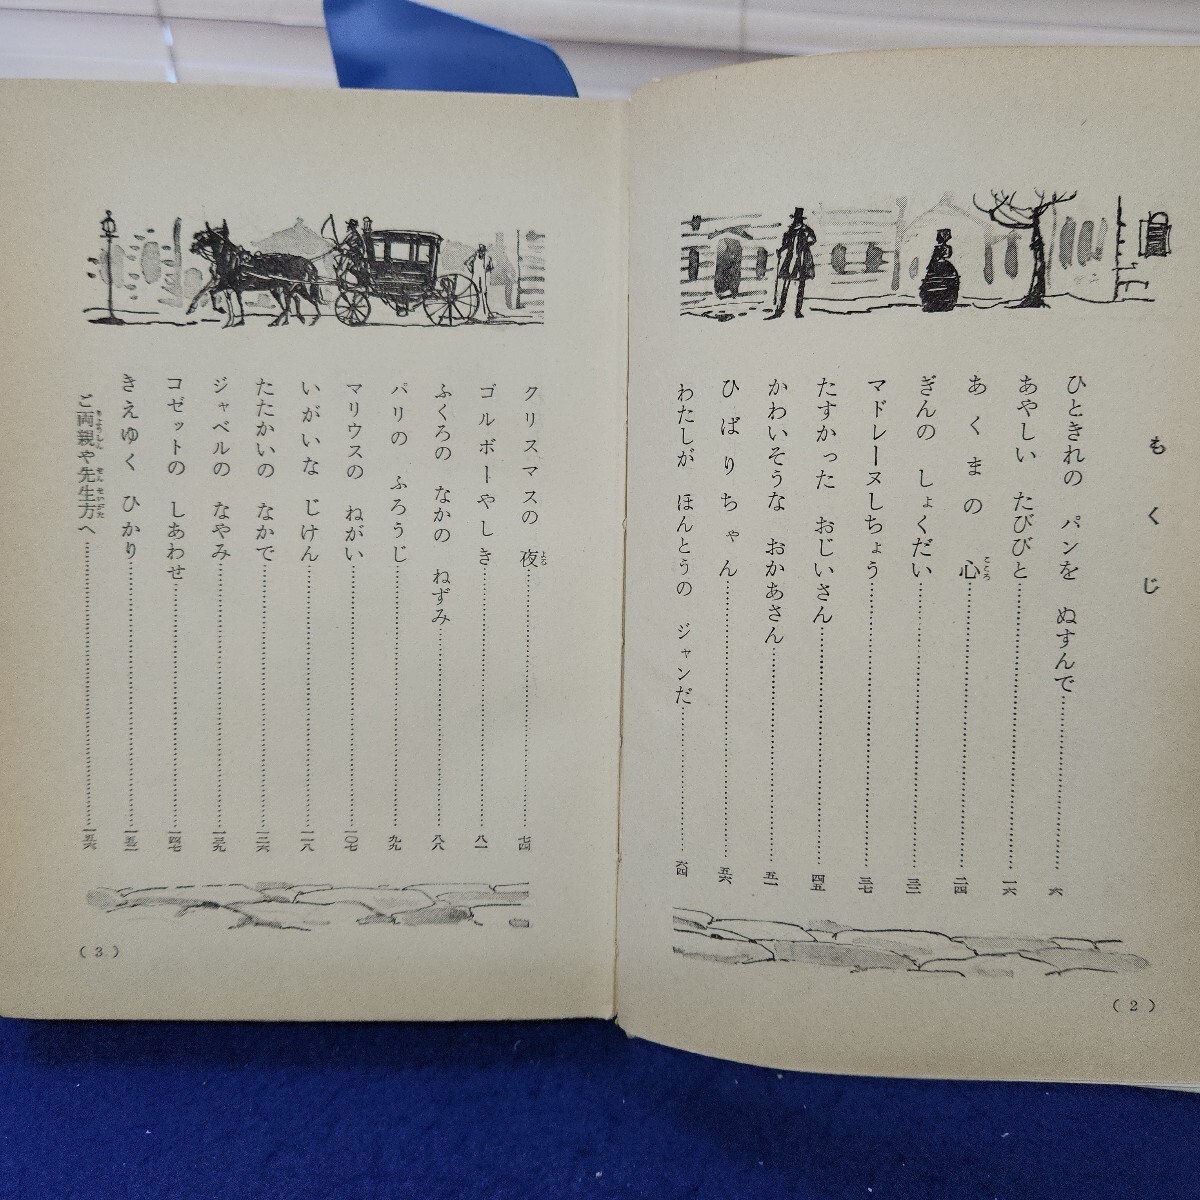 もくじ
ひときれの パンを ぬすんで……………六
あやしい たびびと……………一六
あくまの 心……………二四
こころ
ぎんの しょくだい……………三二
マドレーヌしちょう……………三七
たすかった おじいさん……………四五
かわいそうな おかあさん……………五一
ひばりちゃん……………五六
わたしが ほんとうの ジャンだ……………六四
(2)
クリスマスの 夜……………七四
よる
ゴルボーやしき……………八一
ふくろの なかの ねずみ……………八八
パリの ふろうじ……………九九
マリウスの ねがい……………一〇七
いがいな じけん……………一一八
たたかいの なかで……………一二六
ジャベルの なやみ……………一三九
コゼットの しあわせ……………一四七
きえゆく ひかり……………一五二
ご両親や先生方へ……………一五六
りょうしん せんせいがた
(3)